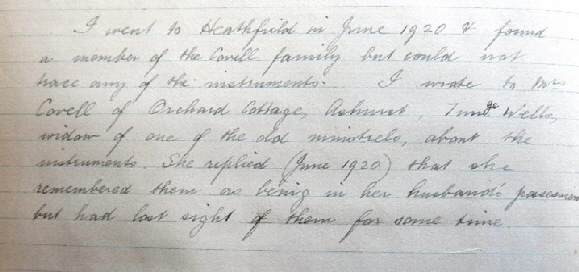 I went to Heathfield in June 1920 & found
a member of the Covell family but could not
trace any of the instruments. I wrote to Mrs
Covell of Orchard Cottage, Ashurst Tun^ge Wells,
widow of one of the old minstrels, about the
instruments. She replied (June 1920) that she
remembered them as being in her husband's
but had lost sight of them for some time.